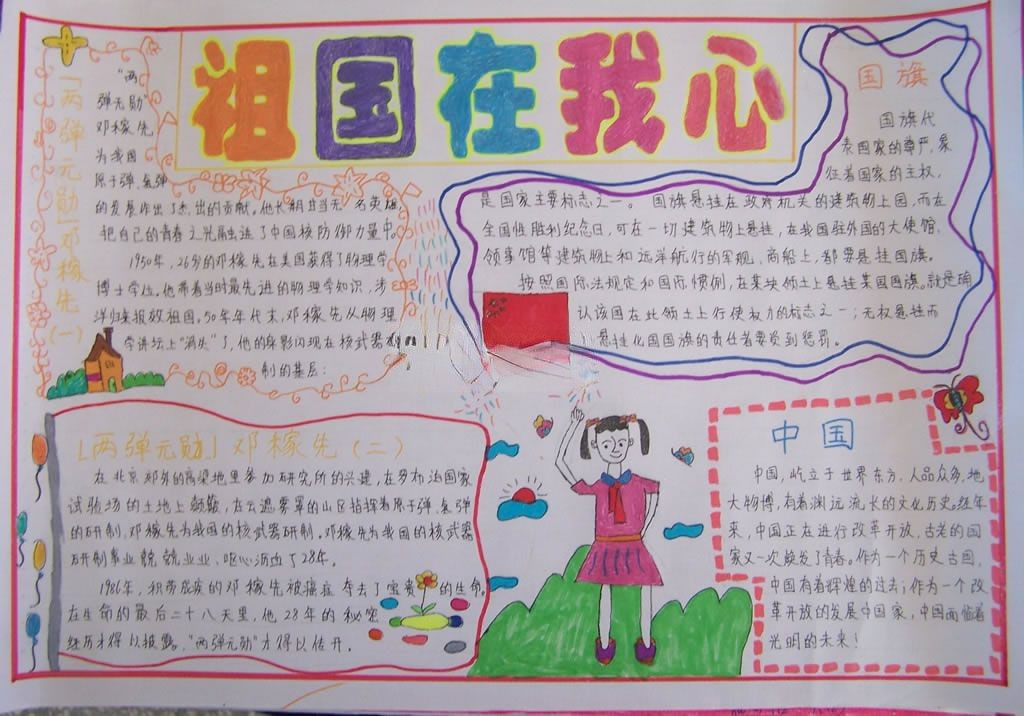 祖国在我心
「两弹元勋」邓稼先(一)
“两
弹元勋”
邓稼先
为我国
原子弹、氢弹
的发展作出了杰出的贡献,他长期甘当无名英雄,
把自己的青春之光融进了中国核防御力量中。
1950年,26岁的邓稼先在美国获得了物理学
博士学位,他带着当时最先进的物理学知识,涉
洋归来报效祖国,50年年代末,邓稼先从物理
学讲坛上“消失”了,他的身影闪现在核武器
制的基层:
国旗
国旗代
表国家的尊严,象
征着国家的主权,
是国家主要标志之一。国旗悬挂在政府机关的建筑物上园,而在
全国性胜利纪念日,可在一切建筑物上悬挂,在我国驻外国的大使馆,
领事馆等建筑物上和远洋航行的军舰,商船上,都要悬挂国旗。
按照国际法规定和国际惯例,在某块领土上悬挂某国国旗。就是确
认该国在此领土上行使权力的标志之一;无权悬挂而
悬挂他国国旗的责任者要受到惩罚。
「两弹元勋」邓稼先(二)
在北京郊外的高粱地里参加研究所的兴建,在罗布泊国家
试验场的土地上颠簸,在云遮雾罩的山区指挥着原子弹、氢弹
的研制,邓稼先为我国的核武器研制。邓稼先为我国的核武器
研制事业兢兢业业、呕心沥血了28年。
1986年,积劳成疾的邓稼先被癌症夺去了宝贵的生命。
在生命的最后二十八天里,他28年的秘密
经历才得以披露。“两弹元勋”才得以传开。
中国
中国,屹立于世界东方,人品众多,地
大物博,有着渊远流长的文化历史。经年
来,中国正在进行改革开放,古老的国
家又一次焕发了青春。作为一个历史古国,
中国有着辉煌的过去;作为一个改
革开放的发展中国家,中国面临着
光明的未来!